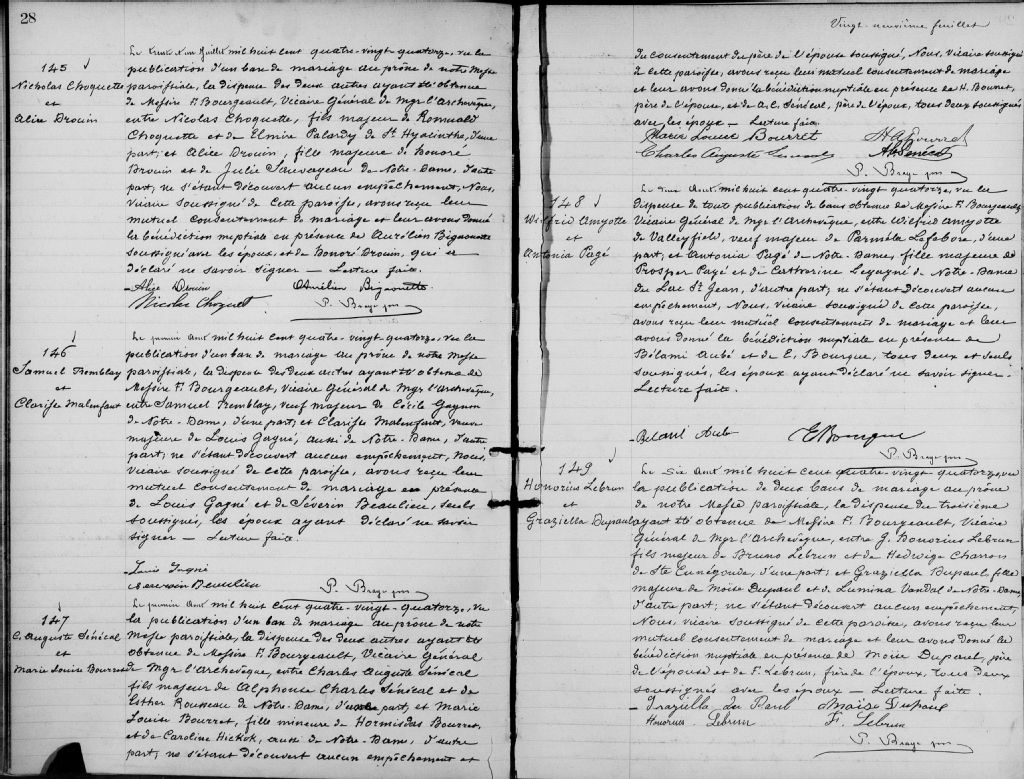 28
145
Nicholas Choquette
et
Alice Drouin
Le trente et un Juillet mil huit cent quatre-vingt-quatorze, vu la
publication d'un ban de mariage au prône de notre Messe
paroissiale, la dispense des deux autres ayant été obtenue
de Messire F. Bourgeault, Vicaire Général de Mgr l'Archevêque,
entre Nicolas Choquette, fils majeur de Romuald
Choquette et de Elmire Palardy de St Hyacinthe, d'une
part, et Alice Drouin, fille majeure de Honoré
Drouin et de Julie Sauvageau de Notre-Dame, d'autre
part, ne s'étant découvert aucun empêchement, Nous,
Vicaire soussigné de cette paroisse, avons reçu leur
mutuel consentement de mariage et leur avons donné
la bénédiction nuptiale en présence de Aurélien Bigaouette
soussigné avec les époux, et de Honoré Drouin, qui a
déclaré ne savoir signer — Lecture faite.
Alice Drouin Aurélien Bigaouette
Nicolas Choquet P. Bray ptre
146
Samuel Tremblay
et
Clarisse Malenfant
Le premier Août mil huit cent quatre-vingt-quatorze, vu la
publication d'un ban de mariage au prône de notre Messe
paroissiale, la dispense des deux autres ayant été obtenue de
Messire F. Bourgeault, Vicaire Général de Mgr l'Archevêque,
entre Samuel Tremblay, veuf majeur de Cécile Gagnon
de Notre-Dame, d'une part, et Clarisse Malenfant, veuve
majeure de Louis Gagné, aussi de Notre-Dame, d'autre
part; ne s'étant découvert aucun empêchement, Nous,
Vicaire soussigné de cette paroisse, avons reçu leur
mutuel consentement de mariage en présence
de Louis Gagné et de Séverin Beaulieu, seuls
soussignés, les époux ayant déclaré ne savoir
signer — Lecture faite.
Louis Gagné
Severin Beaulieu P. Bray ptre
147
C. Auguste Sénécal
et
Marie Louise Bourret
Le premier Août mil huit cent quatre-vingt-quatorze, vu
la publication d'un ban de mariage au prône de notre
Messe paroissiale, la dispense des deux autres ayant été
obtenue de Messire F. Bourgeault, Vicaire Général
de Mgr l'Archevêque, entre Charles Auguste Sénécal
fils majeur de Alphonse Charles Sénécal et de
Esther Rousseau de Notre-Dame, d'une part, et Marie
Louise Bourret, fille mineure de Hormisdas Bourret
et de Caroline Hickok, aussi de Notre-Dame, d'autre
part; ne s'étant découvert aucun empêchement et
Vingt-neuvième feuillet
du consentement du père de l'épouse soussigné, Nous, Vicaire soussigné
de cette paroisse, avons reçu leur mutuel consentement de mariage
et leur avons donné la bénédiction nuptiale en présence de H. Bourret,
père de l'épouse, et de A. C. Sénécal, père de l'époux, tous deux soussignés
avec les époux — Lecture faite.
Marie Louise Bourret
Charles Auguste Senecal
P. Bray ptre
148
Wilfrid Amyotte
et
Antonia Pagé
Août mil huit cent quatre-vingt quatorze, vu la
dispense de toute publication de bans obtenue de Messire F. Bourgeault,
Vicaire Général de Mgr l'Archevêque, entre Wilfrid Amyotte
de Valleyfield, veuf majeur de Parméla Lefebvre, d'une
part, et Antonia Pagé de Notre-Dame, fille majeure de
Prosper Pagé et de Catherine de Notre-Dame
du Lac St Jean, d'autre part; ne s'étant découvert aucun
empêchement, Nous, Vicaire soussigné de cette paroisse,
avons reçu leur mutuel consentement de mariage et leur
avons donné la bénédiction nuptiale en présence de
Bélami Aubé et de E. Bourque, tous deux et seuls
soussignés, les époux ayant déclaré ne savoir signer.
Lecture faite.
Aubé E Bourque
P. Bray ptre
149
Honorius Lebrun
et
Graziella Dupaul
Le Six Août mil huit cent quatre-vingt quatorze, vu
la publication de deux bans de mariage au prône
de notre Messe paroissiale, la dispense du troisième
ayant été obtenue de Messire F. Bourgeault, Vicaire
Général de Mgr l'Archevêque, entre J. Honorius Lebrun
fils majeur de Bruno Lebrun et de Hedwige Charron
de Ste Cunégonde, d'une part; et Graziella Dupaul, fille
majeure de Moïse Dupaul et de Lumina Vandal de Notre-Dame
d'autre part; ne s'étant découvert aucun empêchement,
Nous, Vicaire soussigné de cette paroisse, avons reçu leur
mutuel consentement de mariage et leur avons donné la
bénédiction nuptiale en présence de Moïse Dupaul, père
de l'épouse et de F. Lebrun, frère de l'époux, tous deux
soussignés avec les époux — Lecture faite.
Grazilla du Paul Moise Dupaul
Honorius Lebrun F. Lebrun
P. Bray ptre